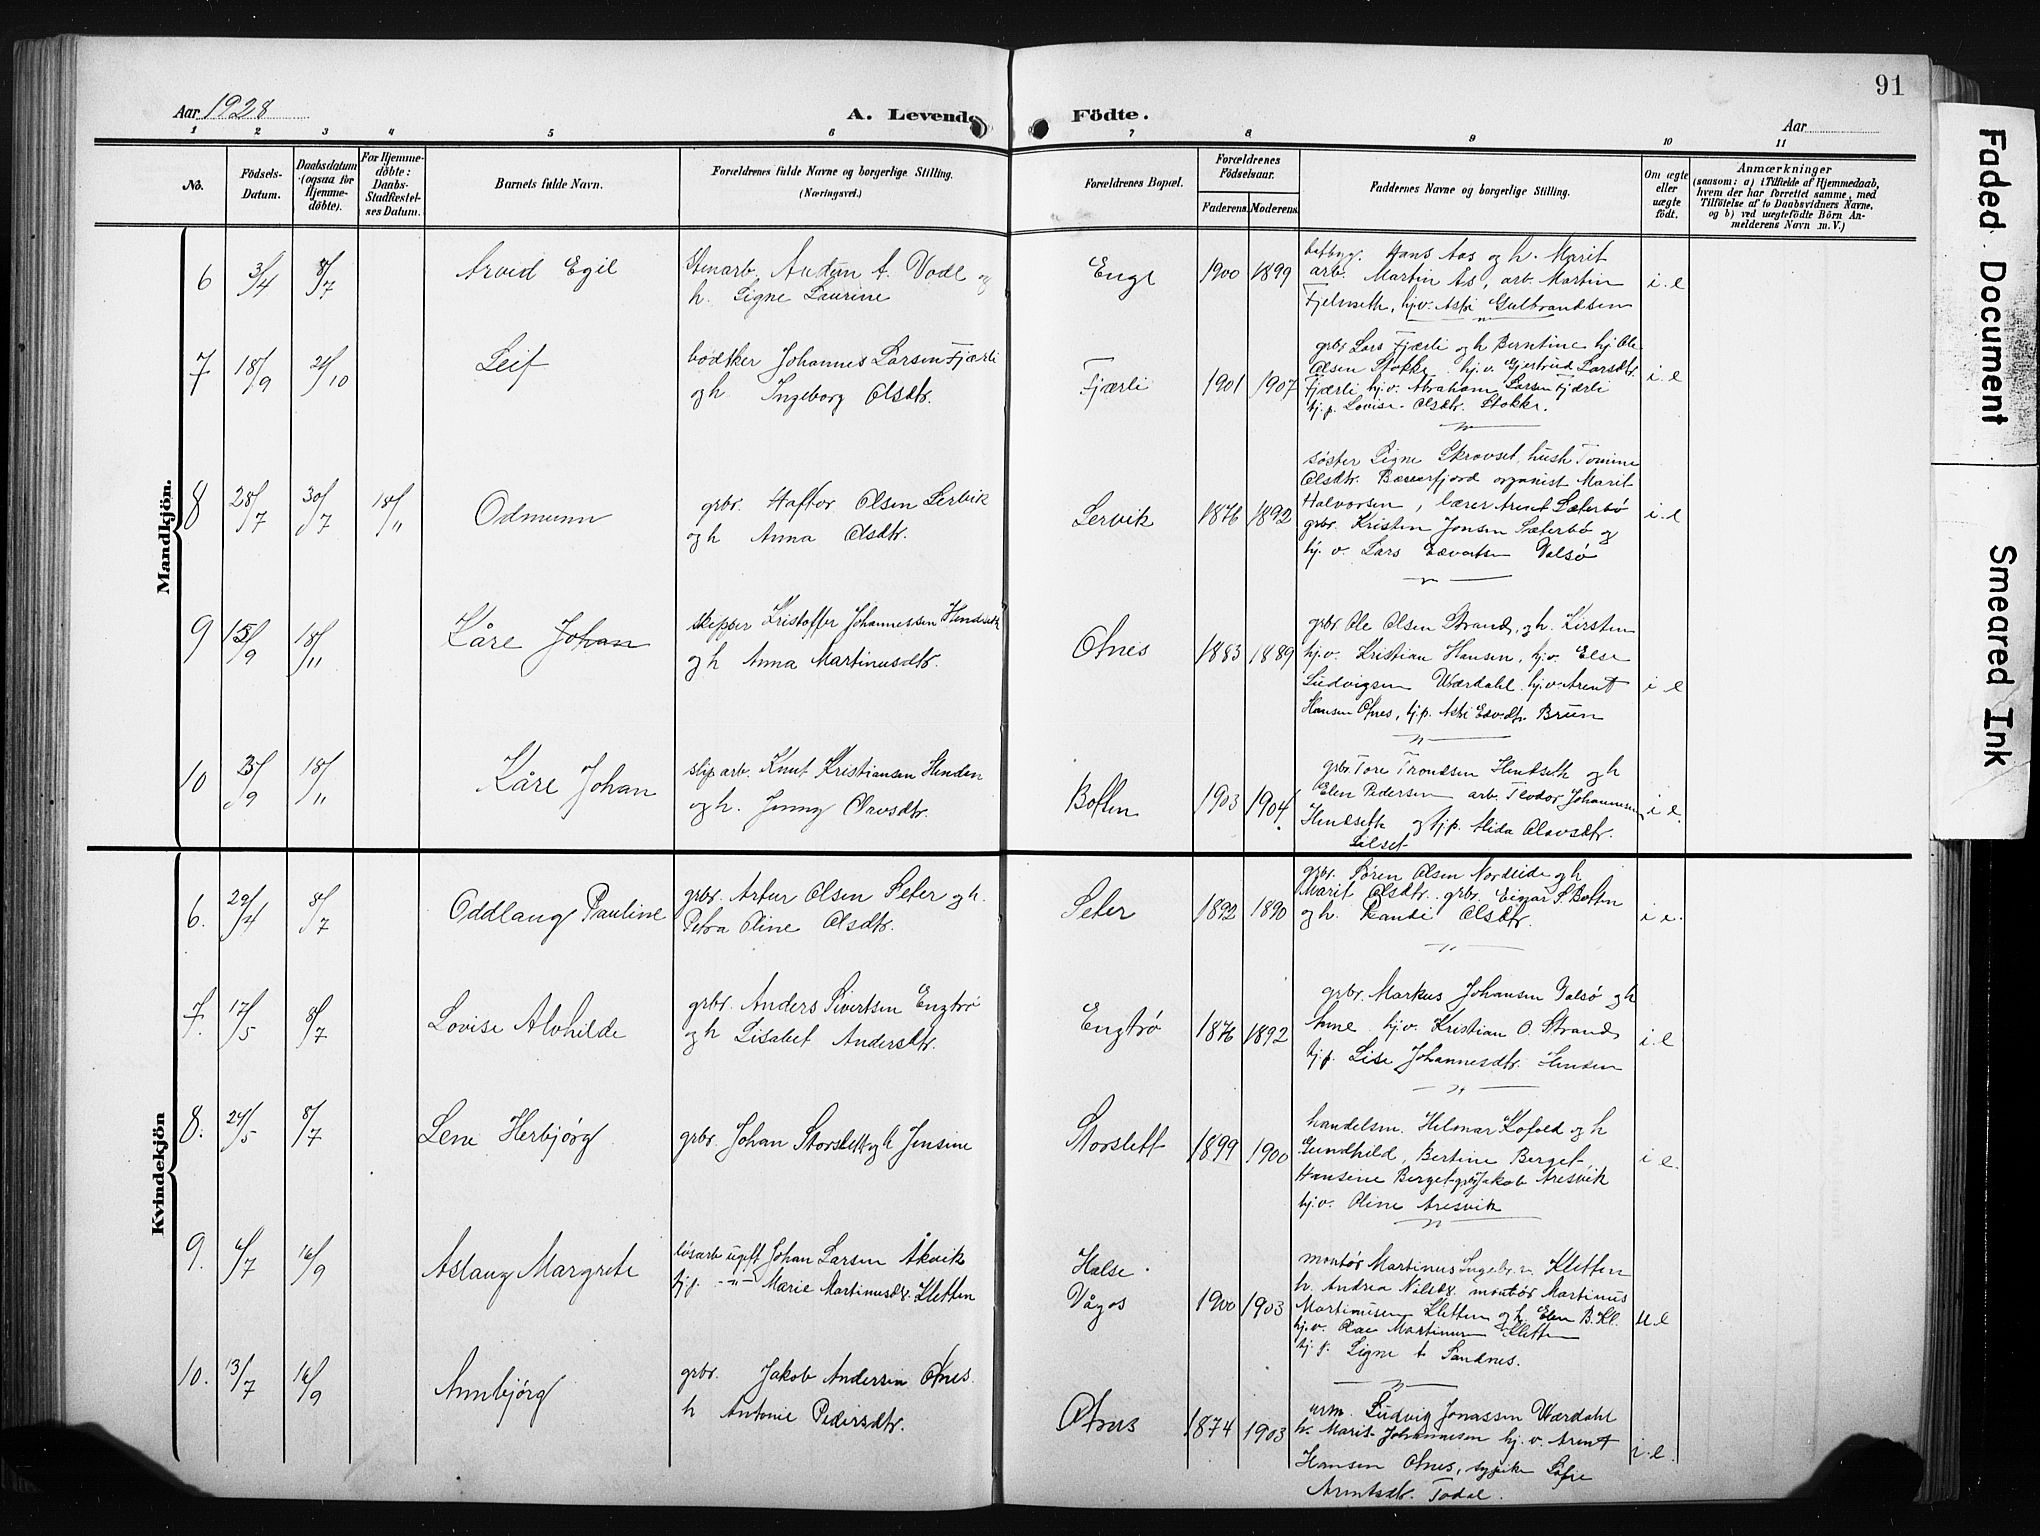 91
Aar 1928
A. Levende Födte.
Aar
1 2 3 4 5 6 7 8 9 10 11
No.
Födsels-Datum.
Daabsdatum (ogsaa for Hjemmedöbte).
For Hjemmedöbte: Daabs-Stadfæstelses Datum.
Barnets fulde Navn.
Forældrenes fulde Navne og borgerlige Stilling.
(Næringsvei.)
Forældrenes Bopæl.
Forældrenes Födselsaar.
Faderens. Moderens.
Faddernes Navne og borgerlige Stilling.
Om ægte eller uægte födt.
Anmærkninger
(saasom: a) i Tilfælde af Hjemmedaab,
hvem der har forrettet samme, med
Tilföielse af to Daabsvidners Navne,
og b) ved uægtefödte Börn An-
melderens Navn m. V.)
Mandkjön.
6 3/4 8/7 Arvid Egil
Stenarb. Audun A. Vodl og
h. Signe Laurine
Enge 1900 1899
Hans Aas og h. Marit
arb. Martin As, arb. Martin
Fjelnseth, hj.v. Asti Gulbrandsen
i.e
7 18/9 21/10 Leif
bødtker Johannes Larsen Fjærli
og h. Ingeborg Olsdtr.
Fjærli 1901 1907
grbr Lars Fjærli og h Berntine hj Ole
Olsen Stokke hj.v. Gjertrud Larsdtr.
Fjærli hj.v. Abraham Larsen Fjærli
hj.p. Lovise Olsdtr. Stokke.
i.e
8 28/7 30/7 18/11 Odmunn
grbr. Haftor Olsen Servik
og h Anna Olsdtr.
Servik 1876 1892
søster Signe Skrovset, hush Tomine
Olsdtr. Bæverfjord organist Marit
Halvorsen, lærer Arent Sæterbø
grbr. Kristen Jonsen Sæterbø og
hj. v. Lars Edvartsen Valsø
i.e
9 15/9 18/11 Kåre Johan
skipper Kristoffer Johannessen Hendseth
og h Anna Martinusdtr.
Otnes 1883 1889
grbr. Ole Olsen Strand, og h. Kirsten
hj.v. Kristian Hansen, hj.v. Else
Ludvigsen Værdahl. hj.v. Arent
Hansen Otnes, hj.p. Asti Edv.dtr. Brun
i e
10 3/9 18/11 Kåre Johan
slip arb. Knut Kristiansen Henden
og h. Jenny Olavsdtr.
Botten 1903 1904
grbr. Tore Trondsen Hendseth og h
Elen Pedersen arb. Teodor Johannesen
Hendseth og hj.p. Alida Olavsdtr.
Lilset
i e.
Kvindekjön
6. 29/4 8/7 Oddlaug Pauline
grbr. Artur Olsen Seter og h.
Petra Oline Olsdtr.
Seter 1892 1890
grbr. Søren Olsen Nordlide og h
Marit Olsdtr. grbr. Einar S. Botten
og h. Randi Olsdtr.
i e.
7. 17/5 8/7 Lovise Alvhilde
grbr. Anders Sivertsen Engtrø
og h Lisabet Andersdtr.
Engtrø 1876 1892
grbr. Markus Johansen Valsø og h
Anne hj.v. Kristian O. Strand
hj.p. Lise Johannesdtr. Hensen
i.e
8. 24/5 8/7 Lene Herbjørg
grbr. Johan Storslett og h Jensine
Storslett 1899 1900
handelsm. Helmar Kofoed og h
Gundhild, Bertine Berget
Hansine Berget grbr Jakob Aresvik
hj.v. Oline Aresvik
i e.
9. 6/7 16/9 Aslaug Margrete
løsarb ugift Johan Larsen Åkvik
hj.p. -"- Marie Martinusd. Kletten
Halse.
Vågos 1900 1903
montør Martinus Ingebr. Kletten
h. Andrea Nilsdtr. montør Martinus
Martinusen Kletten og h. Elen B. Kl.
hj.v. Olav Martinusen Kletten
hj. p. Signe A Sandnes.
u e
10. 13/7 16/9 Annbjørg
grbr. Jakob Andersen Otnes
h Antonie Pedersdtr.
Otnes 1874 1903
arm. Ludvig Jonassen Værdahl
h. Marit Johannesen hj.v. Arent
Hansen Otnes, sypike Sofie
Arntsdtr. Todal.
i.e.
Faded Document
Smeared Ink